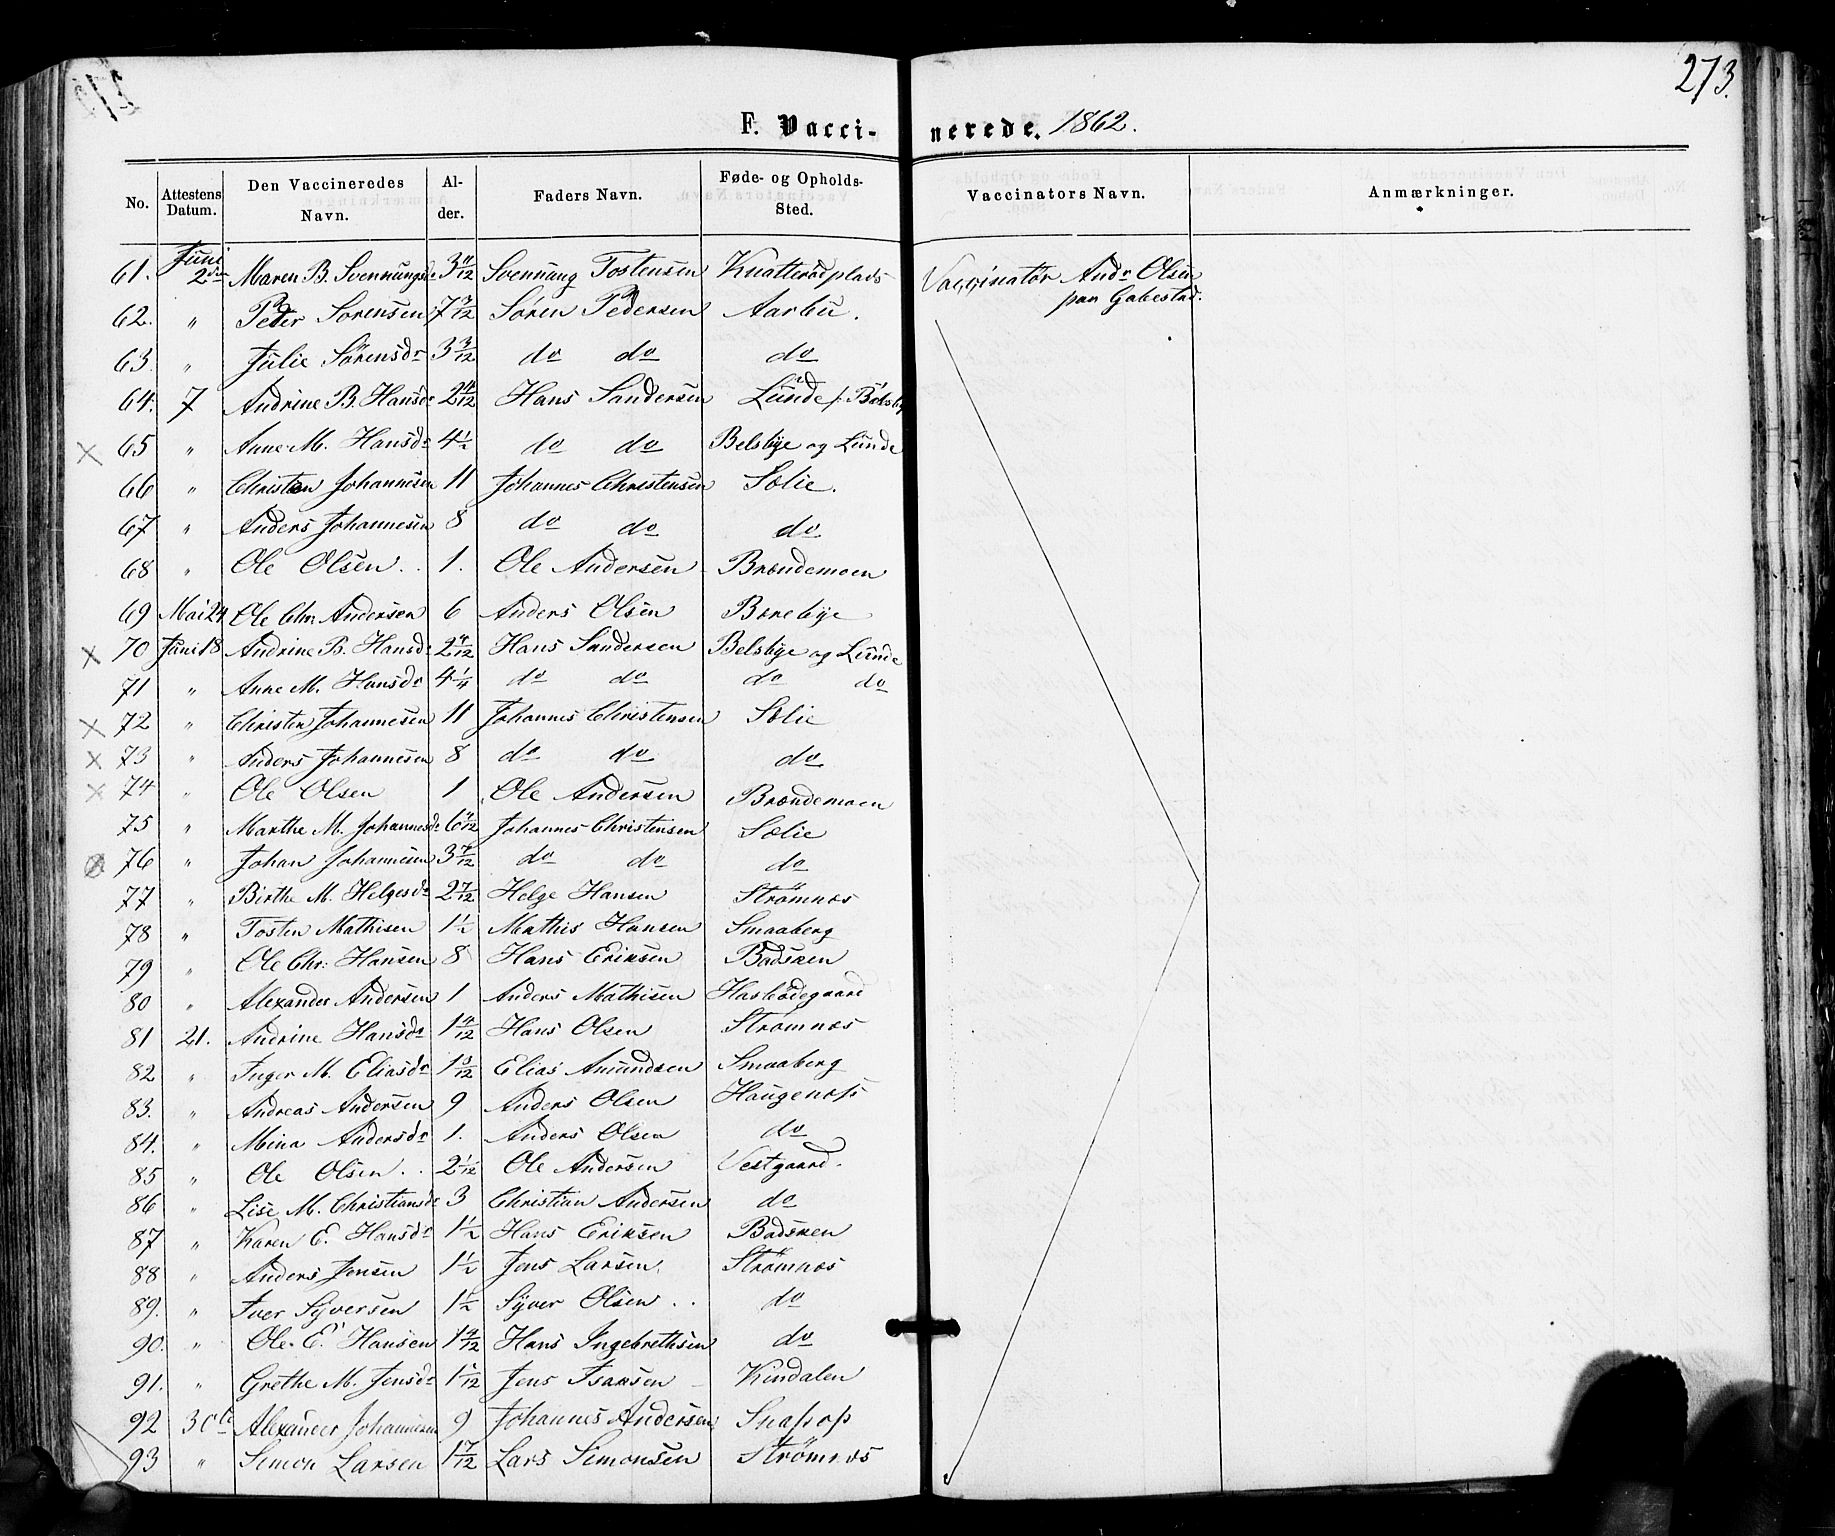 273.
F. Vacci-nerede. 1862.
No. Attestens Datum. Den Vaccineredes Navn. Al-der. Faders Navn. Føde- og Opholds-Sted. Vaccinators Navn. Anmærkninger.
61. Juni 2den Maren B. Svennungsdr 3 Svennung Tostensen Knatterødplads Vaccinatør Andr Olsen
paa Gabestad.
62. " Peder Sørensen 7 Søren Pedersen Aarbu.
63. " Julie Sørensdr 3 3/12 do do do
64. 7 Andrine B. Hansdr 2 4/12 Hans Sandersen Lunde
65 " Anne M. Hansdr 4 1/2 do do Belsbye og Lunde
66 " Christen Johannesen 11 Johannes Christensen Sølie.
67 " Anders Johannesen 8 do do do
68 " Ole Olsen 1. Ole Andersen Brændemoen
69 Mai 24 Ole Chr. Andersen 6 Anders Olsen Borebye
70 Juni 18 Andrine B. Hansdr 2 4/12 Hans Sandersen Belsbye og Lunde
71 " Anne M. Hansdr 4 1/4 do do do do
72 " Christen Johannesen 11 Johannes Christensen Sølie
73 " Anders Johannesen 8 do do do
74 " Ole Olsen 1 Ole Andersen Brændemoen
75 " Marthe M. Johannesdr 6 Johannes Christensen Sølie
76 " Johan Johannesen 3 7/12 do do do
77 " Birthe M. Helgesdr 2 7/12 Helge Hansen Strømnæs
78 " Tosten Mathisen 1 1/2 Mathis Hansen Smaaberg
79 " Ole Chr: Hansen 8 Hans Eriksen Badsken
80 " Alexander Andersen 1 Anders Mathisen Haslødegaard
81 21. Andrine Hansdr 1 4/12 Hans Olsen Strømnæs
82 " Inger M. Eliasdr 1 Elias Amundsen Smaaberg
83. " Andreas Andersen 9 Anders Olsen Haugenæss
84. " Mina Andersdr 1. Anders Olsen do
85 " Ole Olsen 2 1/12 Ole Andersen Vestgaard.
86 " Lise M. Christiansdr 3 Christian Andersen do
87 " Karen E. Hansdr 1 1/2 Hans Eriksen Badsken
88 " Anders Jensen 1 1/2 Jens Larsen. Strømnæs
89. " Iver Syversen 1 1/2 Syver Olsen do
90. " Ole E. Hansen 1 Hans Ingebrethsen do
91. " Grethe M. Jensdr 1 Jens Isaksen Kindalen
92 30te Alexander Johannesen 9 Johannes Andersen
93 " Simon Larsen 1 7/12 Lars Simonsen Strømnæs